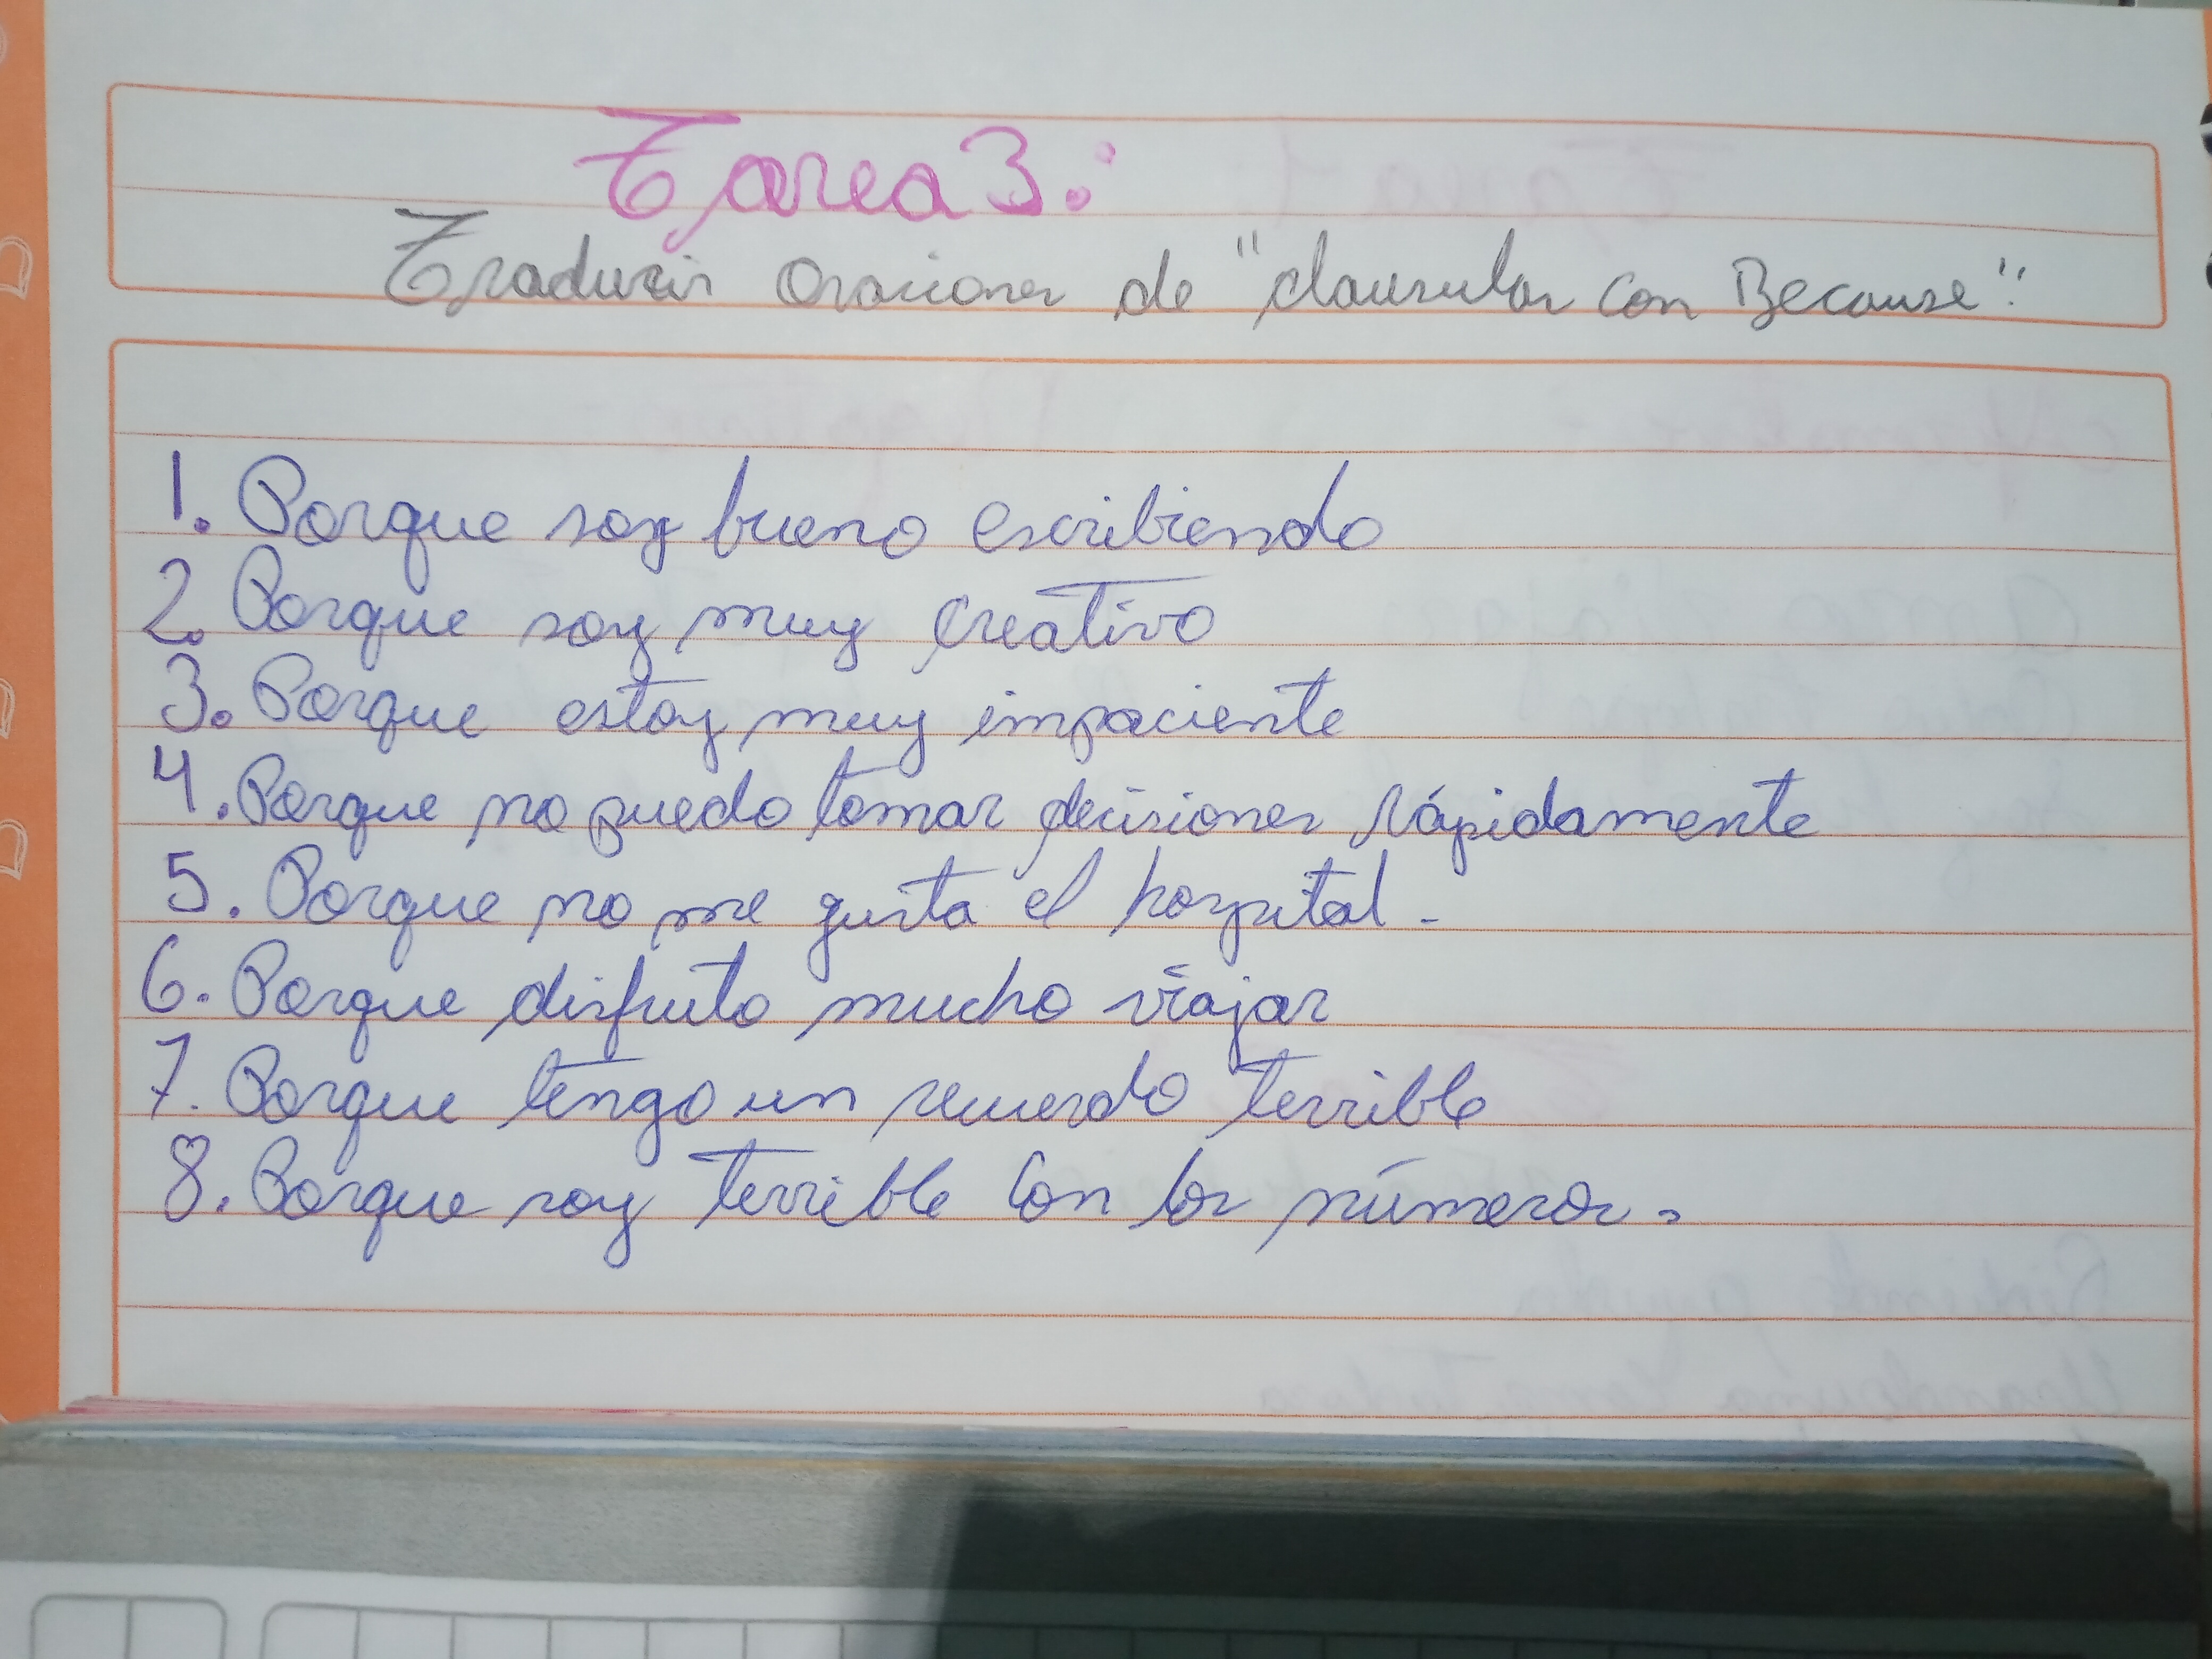 Tarea 3:
Traducir Oraciones de "clausulas con Because".
1. Porque soy bueno escribiendo
2. Porque soy muy creativo
3. Porque estoy muy impaciente
4. Porque no puedo tomar decisiones rápidamente
5. Porque no me gusta el hospital.
6. Porque disfruto mucho viajar
7. Porque tengo un recuerdo terrible
8. Porque soy terrible con los números.